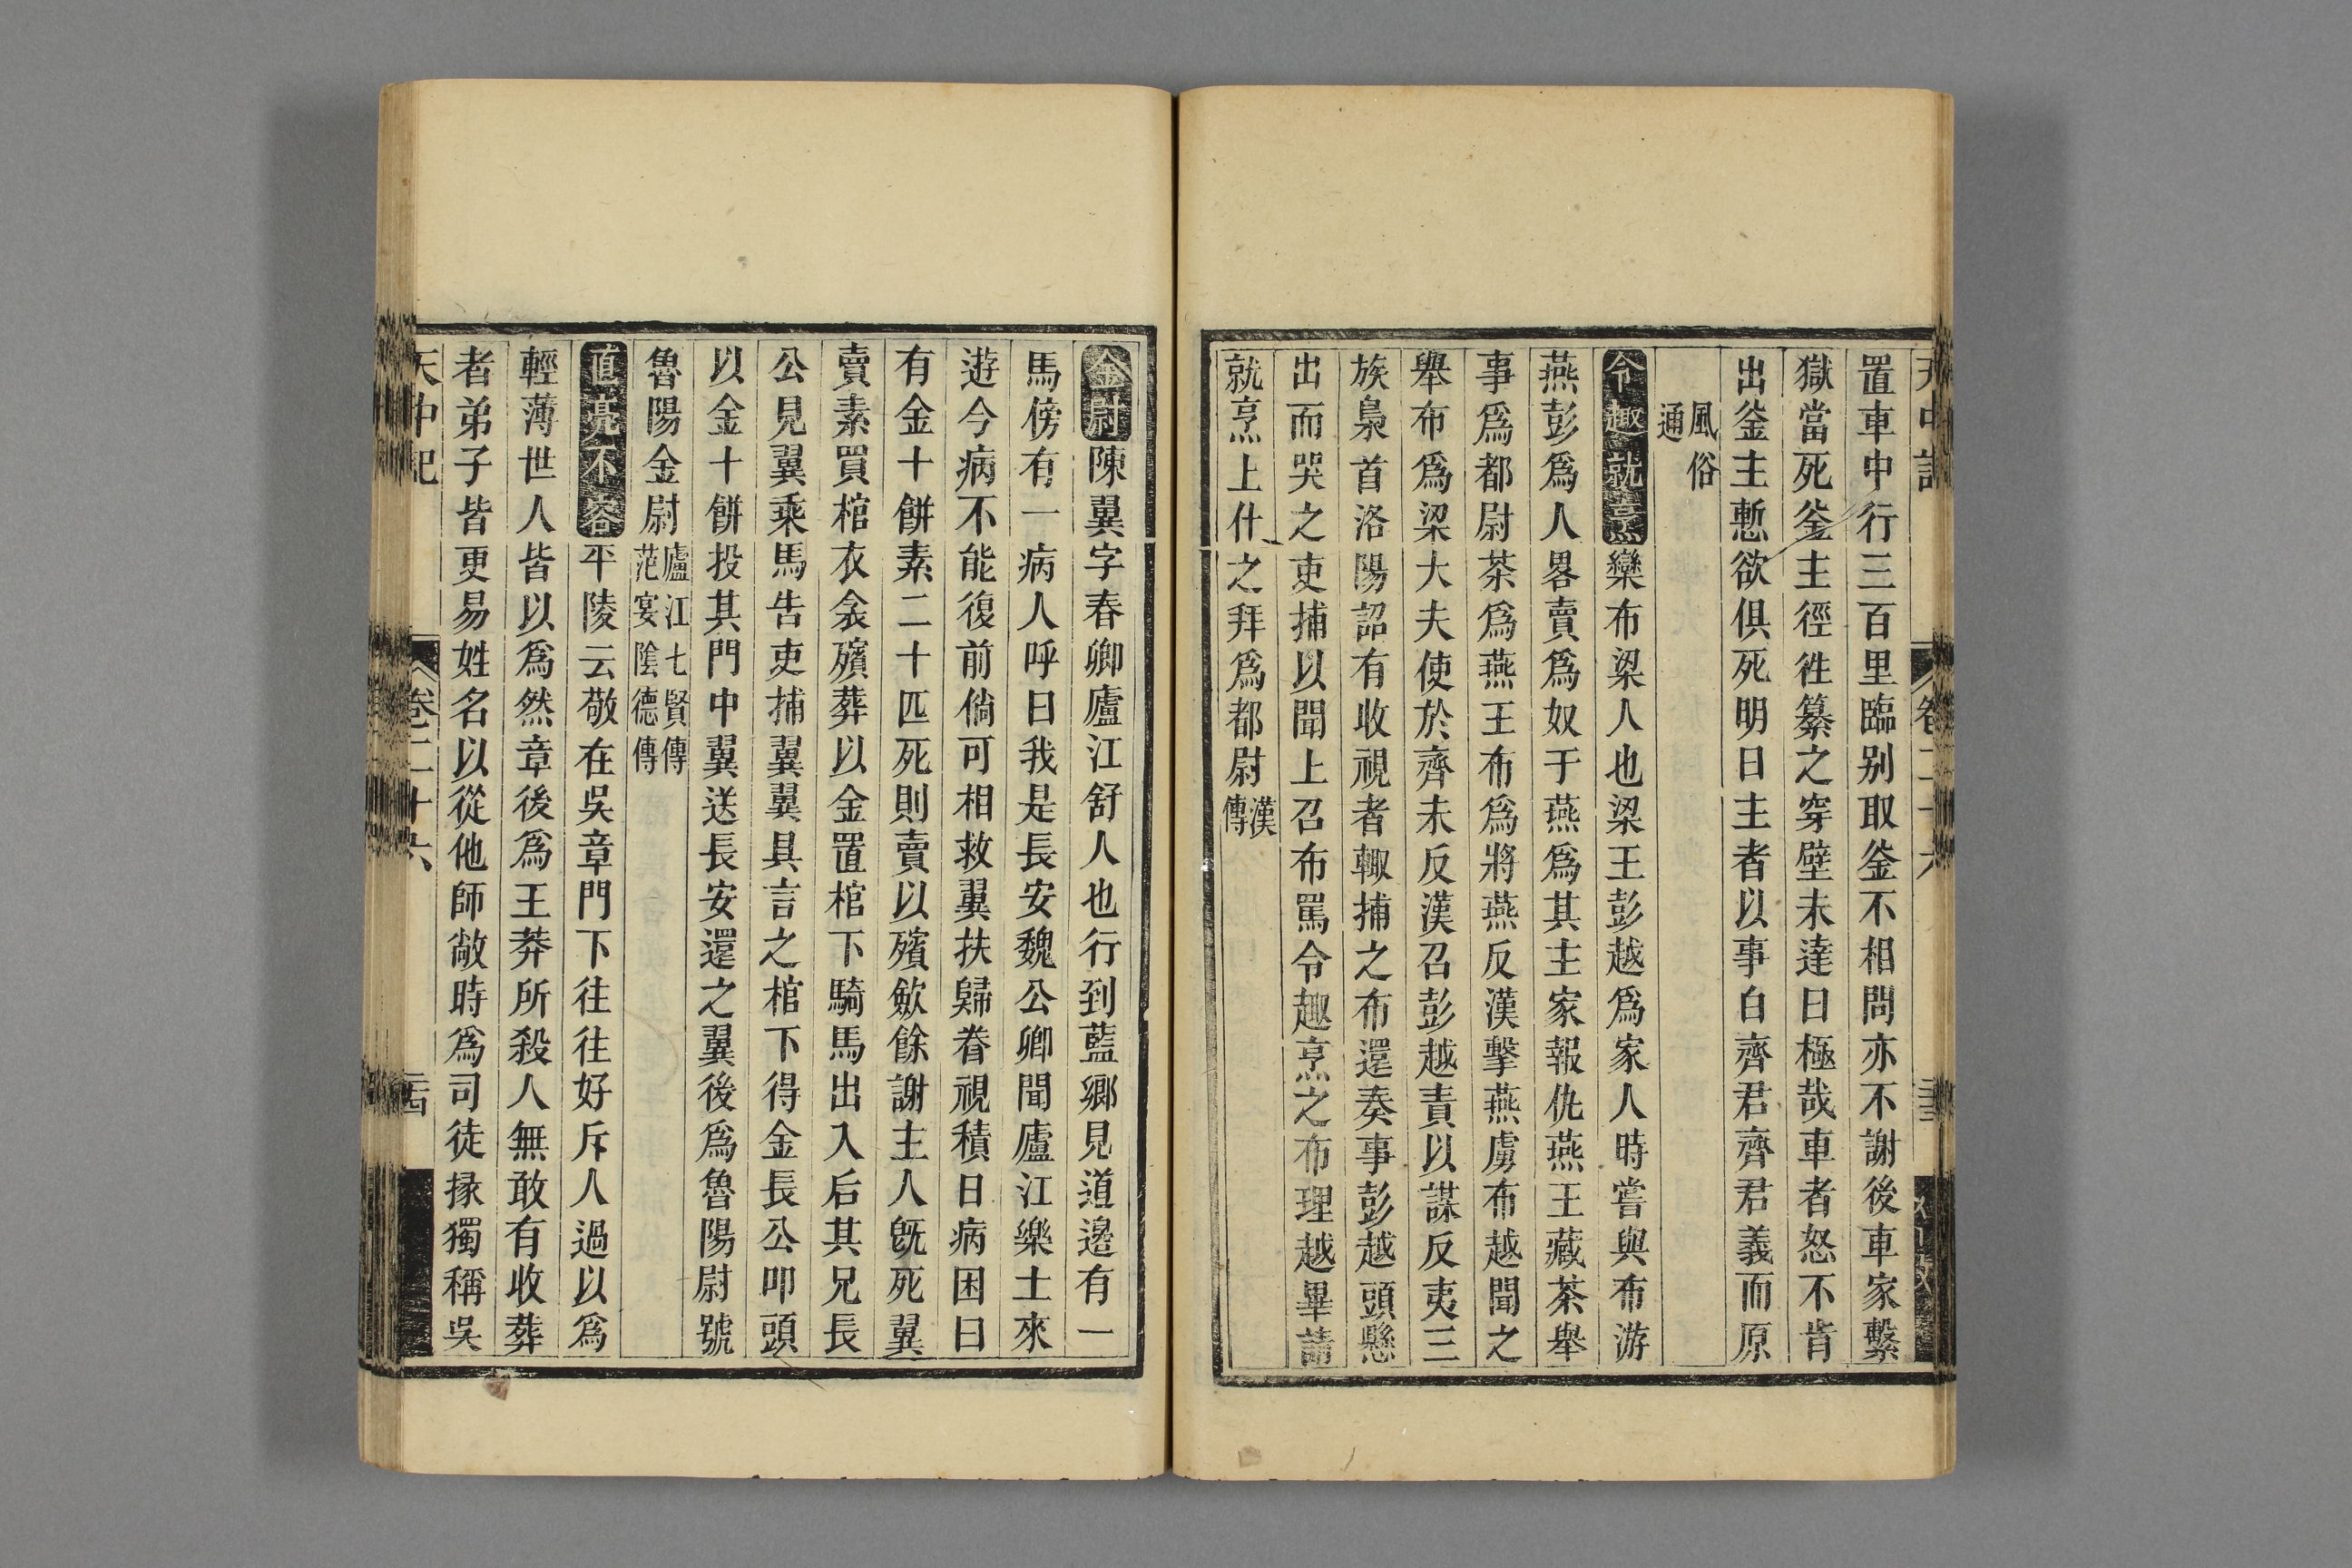 置車中行三百里臨别取釡不相問亦不謝後車家繫
獄當死釡主徑徃纂之穿壁未達曰極哉車者怒不肯
出釡主慙欲俱死明日主者以事白齊君齊君義而原
風俗
通
令趣就烹欒布梁人也梁王彭越爲家人時嘗與布游
燕彭爲人畧賣爲奴于燕爲其主家報仇燕王藏荼舉
事爲都尉荼爲燕王布爲將燕反漢擊燕虜布越聞之
舉布爲梁大夫使於齊未反漢召彭越責以謀反夷三
族梟首洛陽詔有收視者輙捕之布還奏事彭越頭懸
出而哭之吏捕以聞上召布罵令趣烹之布理越畢請
就烹上什之拜爲都尉漢
傳
金尉陳翼字春卿廬江舒人也行到藍鄉見道邊有一
馬傍有一病人呼曰我是長安魏公卿聞廬江樂土來
遊今病不能復前倘可相救翼扶歸眷視積日病困曰
有金十餅素二十匹死則賣以殯斂餘謝主人旣死翼
賣素買棺衣衾殯葬以金置棺下騎馬出入后其兄長
公見翼乘馬告吏捕翼翼具言之棺下得金長公叩頭
以金十餅投其門中翼送長安還之翼後爲魯陽尉號
魯陽金尉廬江七賢傳
范宴陰德傳
直亮不容平陵云敬在吳章門下往往好斥人過以爲
輕薄世人皆以爲然章後爲王莽所殺人無敢有收葬
者弟子皆更易姓名以從他師敞時爲司徒掾獨稱吳
天中記
卷二十六
二十四